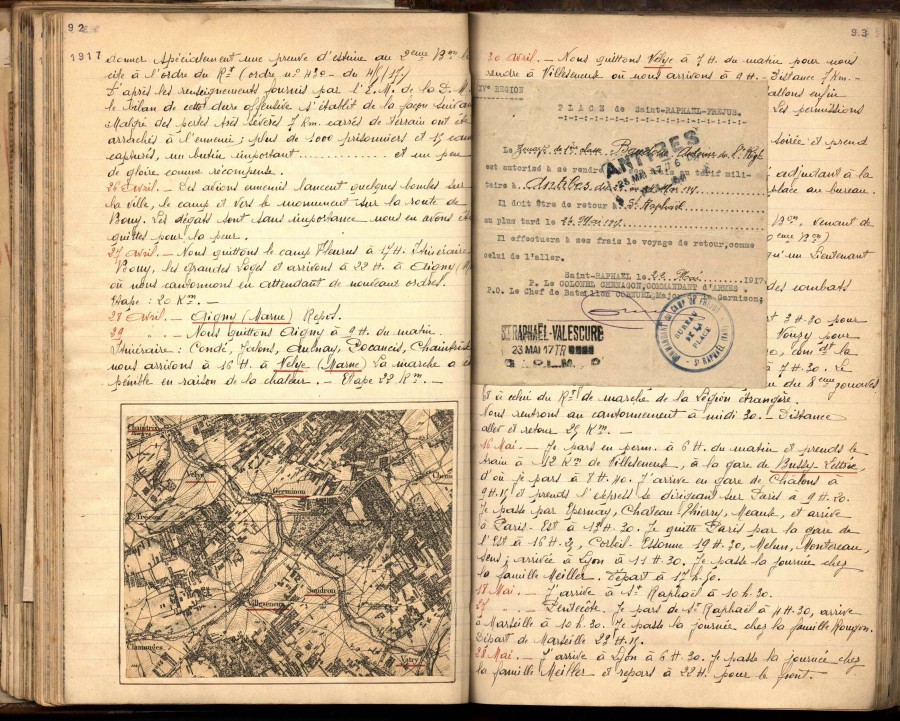 92
1917 donner spécialement une preuve d'estime au 2eme Bon
cité à l'ordre du Rgt (ordre no 420 - du
D'après les renseignements fournis par l'E.M. de la D.M.
le bilan de cette dure offensive s'établit de la façon
Malgré des pertes très sévères 7 km. carrés de terrain ont
arrachés à l'ennemi ; plus de 1000 prisonniers et 15
capturés, un butin important.............. et un peu
de gloire comme récompense.
26 Avril. — Des avions ennemis lancent quelques bombes sur
la ville, le camp et vers le monument sur la route de
Bouy. Les dégâts sont sans importance - nous en avons
quittes pour la peur.
27 Avril. — Nous quittons le camp Fleurus à 17 H. Itinéraire
Bouy, les Grandes Loges et arrivons à 22 H. à Aigny
où nous cantonnons en attendant de nouveaux ordres.
Etape : 20 Km. —
28 Avril. — Aigny (Marne) Repos.
29 " — Nous quittons Aigny à 9 H. du matin.
Itinéraire : Condé, Jalons, Aulnay, Pocancis,
nous arrivons à 16 H. à Velye (Marne) La marche a
pénible en raison de la chaleur. — Etape 22 Km. —
Chaintrix
Velye
Germinon
Villeseneux
Soudron
Clamanges
Vatry
93
30 Avril. — Nous quittons Velye à 7 H. du matin pour nous
rendre à Villeseneux où nous arrivons à 9 H. - Distance 7 Km. -
allons enfin
Les permissions
soirée et prend
adjudant à la
place au bureau.
Bon, venant de
qu'un Lieutenant
des combats
3 H.30 pour
Vouzy pour
à 7 H.30. Le
du 8eme zouaves
IVe REGION
PLACE de Saint-RAPHAEL-FREJUS.
-:-:-:-:-:-:-:-:-:-:-:-:-:-:-:-:-
Le Zouave de 1ère classe
est autorisé à se rendre au tarif mili-
taire à Antibes
Il doit être de retour à St Raphaël
au plus tard le 24 Mai 1917
Il effectuera à mes frais le voyage de retour, comme
celui de l'aller.
Saint-RAPHAEL le 22 Mai 1917
P. Le COLONEL GERMAGON, COMMANDANT d'ARMES
P.O. Le Chef de Bataillon CORNUEL, Major de Garnison;
ANTIBES
ST RAPHAËL-VALESCURE
23 MAI 17
BUREAU
DE LA
PLACE
ST RAPHAËL
et à celui du Rgt de marche de la Légion étrangère.
Nous rentrons au cantonnement à midi 30. — Distance
aller et retour 25 Km. —
16 Mai. — Je pars en perm. à 6 H. du matin et prends le
train à 12 Km de Villeseneux, à la gare de Bussy-Lettrée,
d'où je pars à 8 H.40. J'arrive en gare de Chalons à
9 H.15 et prends l'express se dirigeant sur Paris à 9 H.20.
Je passe par Epernay, Chateau-Thierry, Meaux, et arrive
à Paris-Est à 13 H.30. Je quitte Paris par la gare de
l'Est à 16 H. Corbeil-Essonne 19 H.30, Melun, Montereau,
Sens ; arrivée à Lyon à 11 H.30. Je passe la journée chez
la famille Meiller. Départ à 17 H.50.
18 Mai. — J'arrive à St Raphaël à 10 h.30.
27 " — Pentecôte. Je pars de St Raphaël à 4 H.30, arrive
à Marseille à 10 h.30. Je passe la journée chez la famille Rougon.
Départ de Marseille 22 H.15.
28 Mai. — J'arrive à Lyon à 6 H.30. Je passe la journée chez
la famille Meiller et repars à 22 H. pour le front.